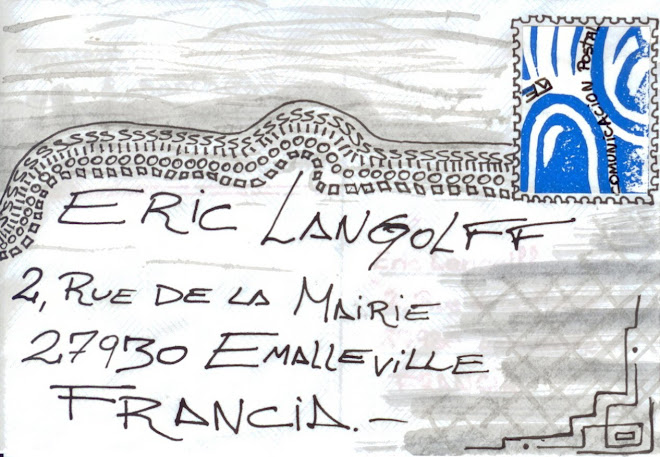 COMUNICACION POSTAL
ERIC LANGOLFF
2, RUE DE LA MAIRIE
27930 EMALLEVILLE
FRANCIA.-